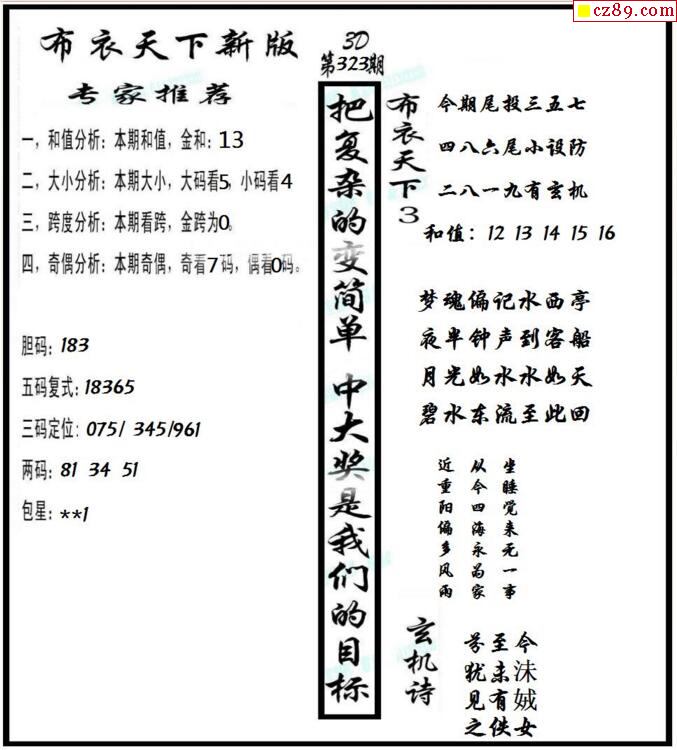 cz89.com
布衣天下新版
专家推荐
一，和值分析：本期和值，金和：13
二，大小分析：本期大小，大码看5，小码看4
三，跨度分析：本期看跨，金跨为0。
四，奇偶分析：本期奇偶，奇看7码，偶看0码。
胆码：183
五码复式：18365
三码定位：075/ 345/961
两码：81 34 51
包星：**1
3D
第323期
把复杂的变简单 中大奖是我们的目标
布衣天下3
今期尾投三五七
四八六尾小设防
二八一九有玄机
和值：12 13 14 15 16
梦魂偏记水西亭
夜半钟声到客船
月光如水水如天
碧水东流至此回
坐睡觉来无一事
从今四海永为家
近重阳偏多风雨
玄机诗
今沬娀女
至未有佚
芬犹见之